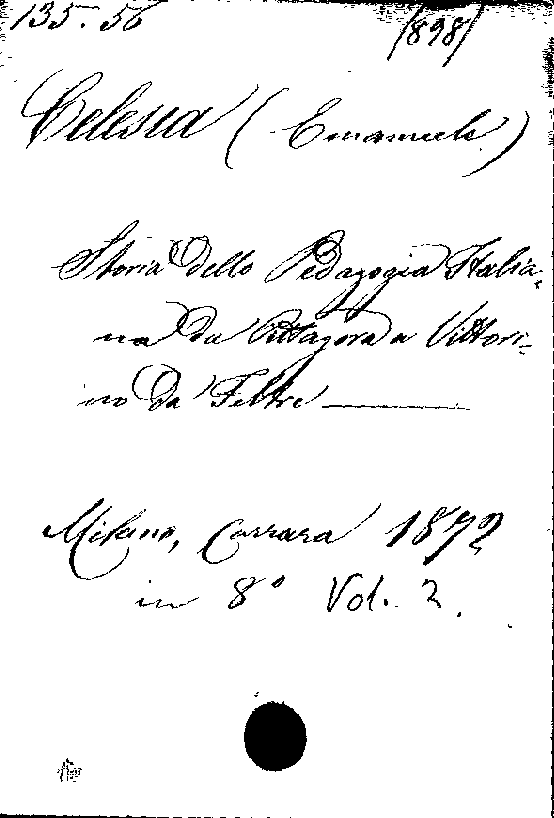 135. 56 (898)
Celesia (Emanuele)
Storia della Pedagogia Italia-
na da Pittagora a Vittori-
no da Feltre
Milano, Carrara 1872
in 8° Vol. 2.